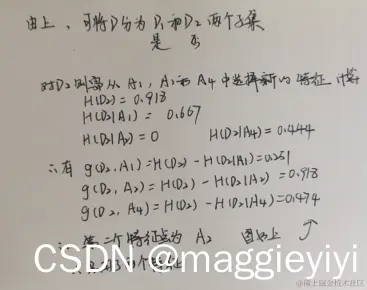 由上，可将D分为D₁和D₂两个子集
是 否
对D₂则需从A₁，A₂和A₄中选择新的特征，计算
H(D₂) = 0.918
H(D₂|A₁) = 0.667
H(D₂|A₂) = 0 H(D₂|A₄) = 0.444
∴有 g(D₂,A₁)=H(D₂)-H(D₂|A₁)=0.251
g(D₂,A₂)=H(D₂)-H(D₂|A₂)=0.918
g(D₂,A₄)=H(D₂)-H(D₂|A₄)=0.474
∴ 第二个特征点为 A₂ 图如上
CSDN @maggieyiyi
个特征
@稀土掘金技术社区